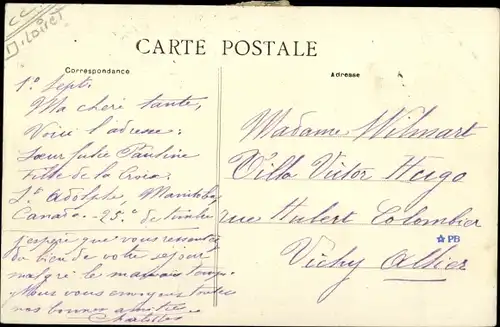 Loiret
CARTE POSTALE
Correspondance
Adresse
1º Sept.
Ma chère tante,
Voici l'adresse:
Sœur Julie Pauline
Fille de la Croix
St Adolphe, Manitoba
Canada - 25c de timbre
j'espère que vous ressentez
du bien de votre séjour
malgré le mauvais temps.
Nous vous envoyons toutes
nos bonnes amitiés
Madame Wilmart
Villa Victor Hugo
rue Hubert Colombier
Vichy Allier
PB